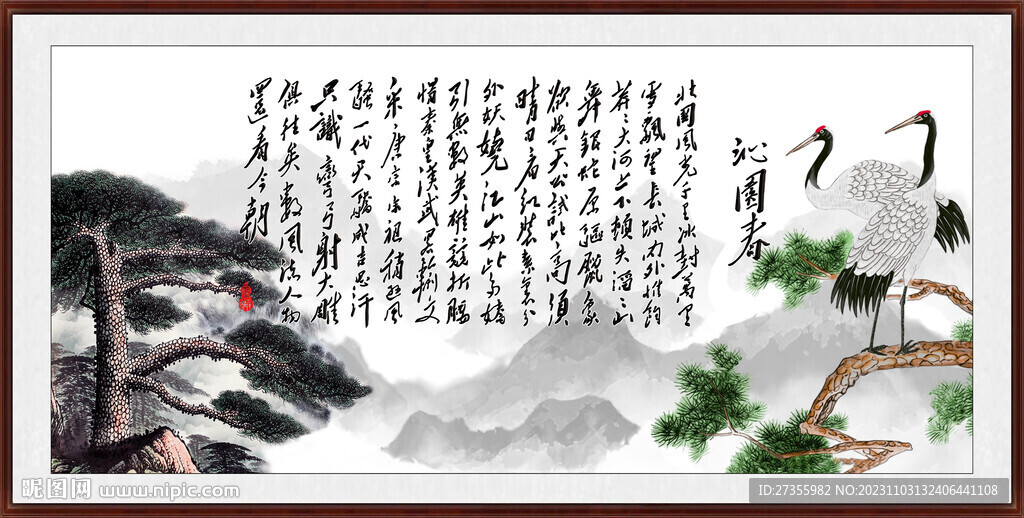 沁園春
北國風光千里冰封萬里
雪飄望長城內外惟餘
莽々大河上下頓失滔々山
舞銀蛇原驅臘象
欲與天公試比高須
晴日看紅裝素裹分
外妖嬈江山如此多嬌
引無數英雄競折腰
惜秦皇漢武略輸文
采唐宗宋祖稍遜風
騷一代天驕成吉思汗
只識彎弓射大雕
俱往矣數風流人物
還看今朝
昵图网 www.nipic.com
ID:27355982 NO:20231103132406441108